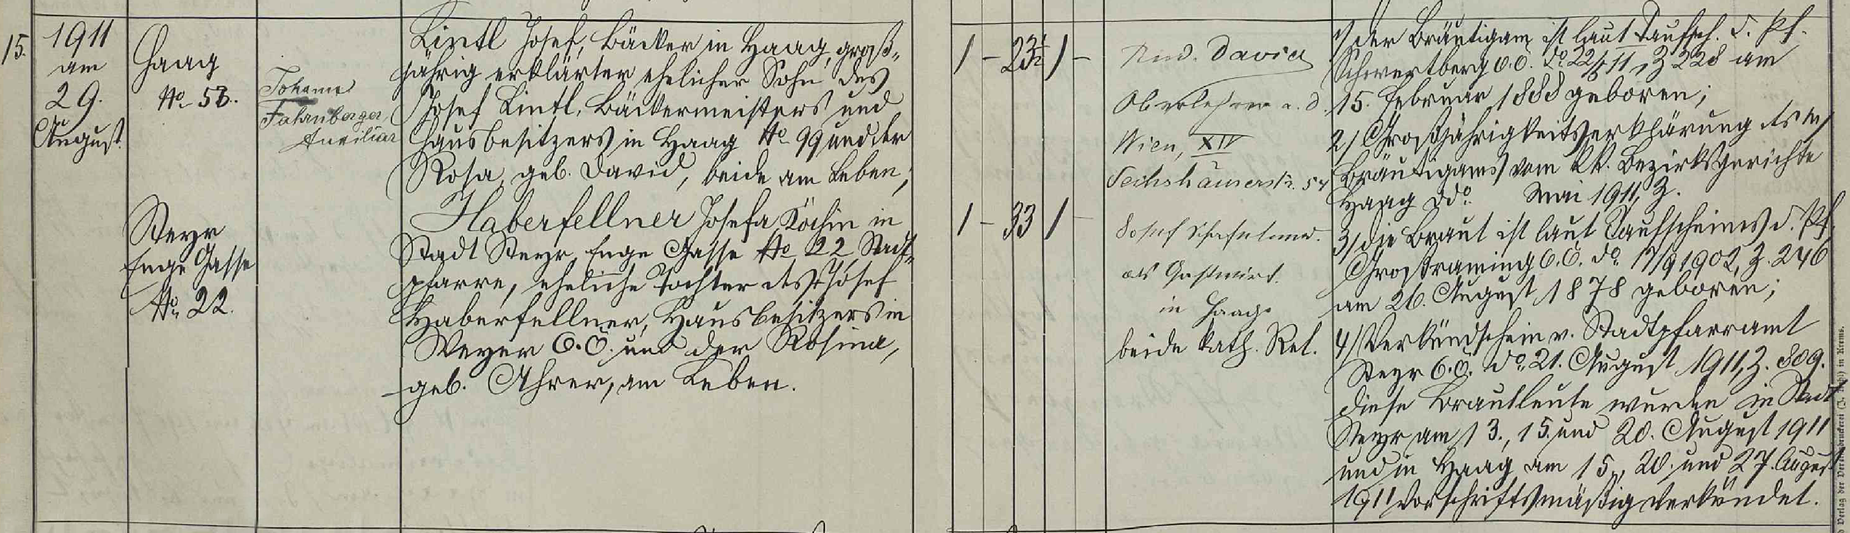 15.
1911
am
29.
August.
Haag
No. 53.
Steyr
Enge Gasse
No. 22.
Johann
Fahrnberger
Auxiliar
Lintl Josef, Bäcker in Haag, groß-
jährig erklärter ehelicher Sohn des
Josef Lintl, Bäckermeisters und
Hausbesitzers in Haag No 99 und der
Rosa, geb. David, beide am Leben;
Haberfellner Josefa Köchin in
Stadt Steyr, Enge Gasse No 22 Stadt-
pfarre, eheliche Tochter des Josef
Haberfellner, Hausbesitzers in
Weyer O.Ö. und der Rosina,
geb. Ahrer, am Leben.
1 - 23½ 1 -
1 - 33 1 -
Rud. David
Oberlehrer a. d.
Wien, XIV
Sechshauserstr. 54
Josef
als Gastwirt
in Haag.
beide kath. Rel.
1/ der Bräutigam ist laut Taufsch. d. Pf.
Schwertberg O.Ö. do 22/ 11, Z 228 am
15. Februar 1888 geboren;
2/ Großjährigkeitserklärung des
Bräutigams vom k.k. Bezirksgerichte
Haag ddo. Mai 1911, Z.
3/ die Braut ist laut Taufscheines d. Pf.
Großraming O.Ö. do. 17/9 1902, Z. 246
am 26. August 1878 geboren;
4/ Verkündschein v. Stadtpfarramt
Steyr O.Ö. do. 21. August 1911, Z. 809.
Diese Brautleute wurden in Stadt
Steyr am 13., 15. und 20. August 1911
und in Haag am 15., 20. und 27. August
1911 vorschriftsmäßig verkündet.
Verlag der in Krems.